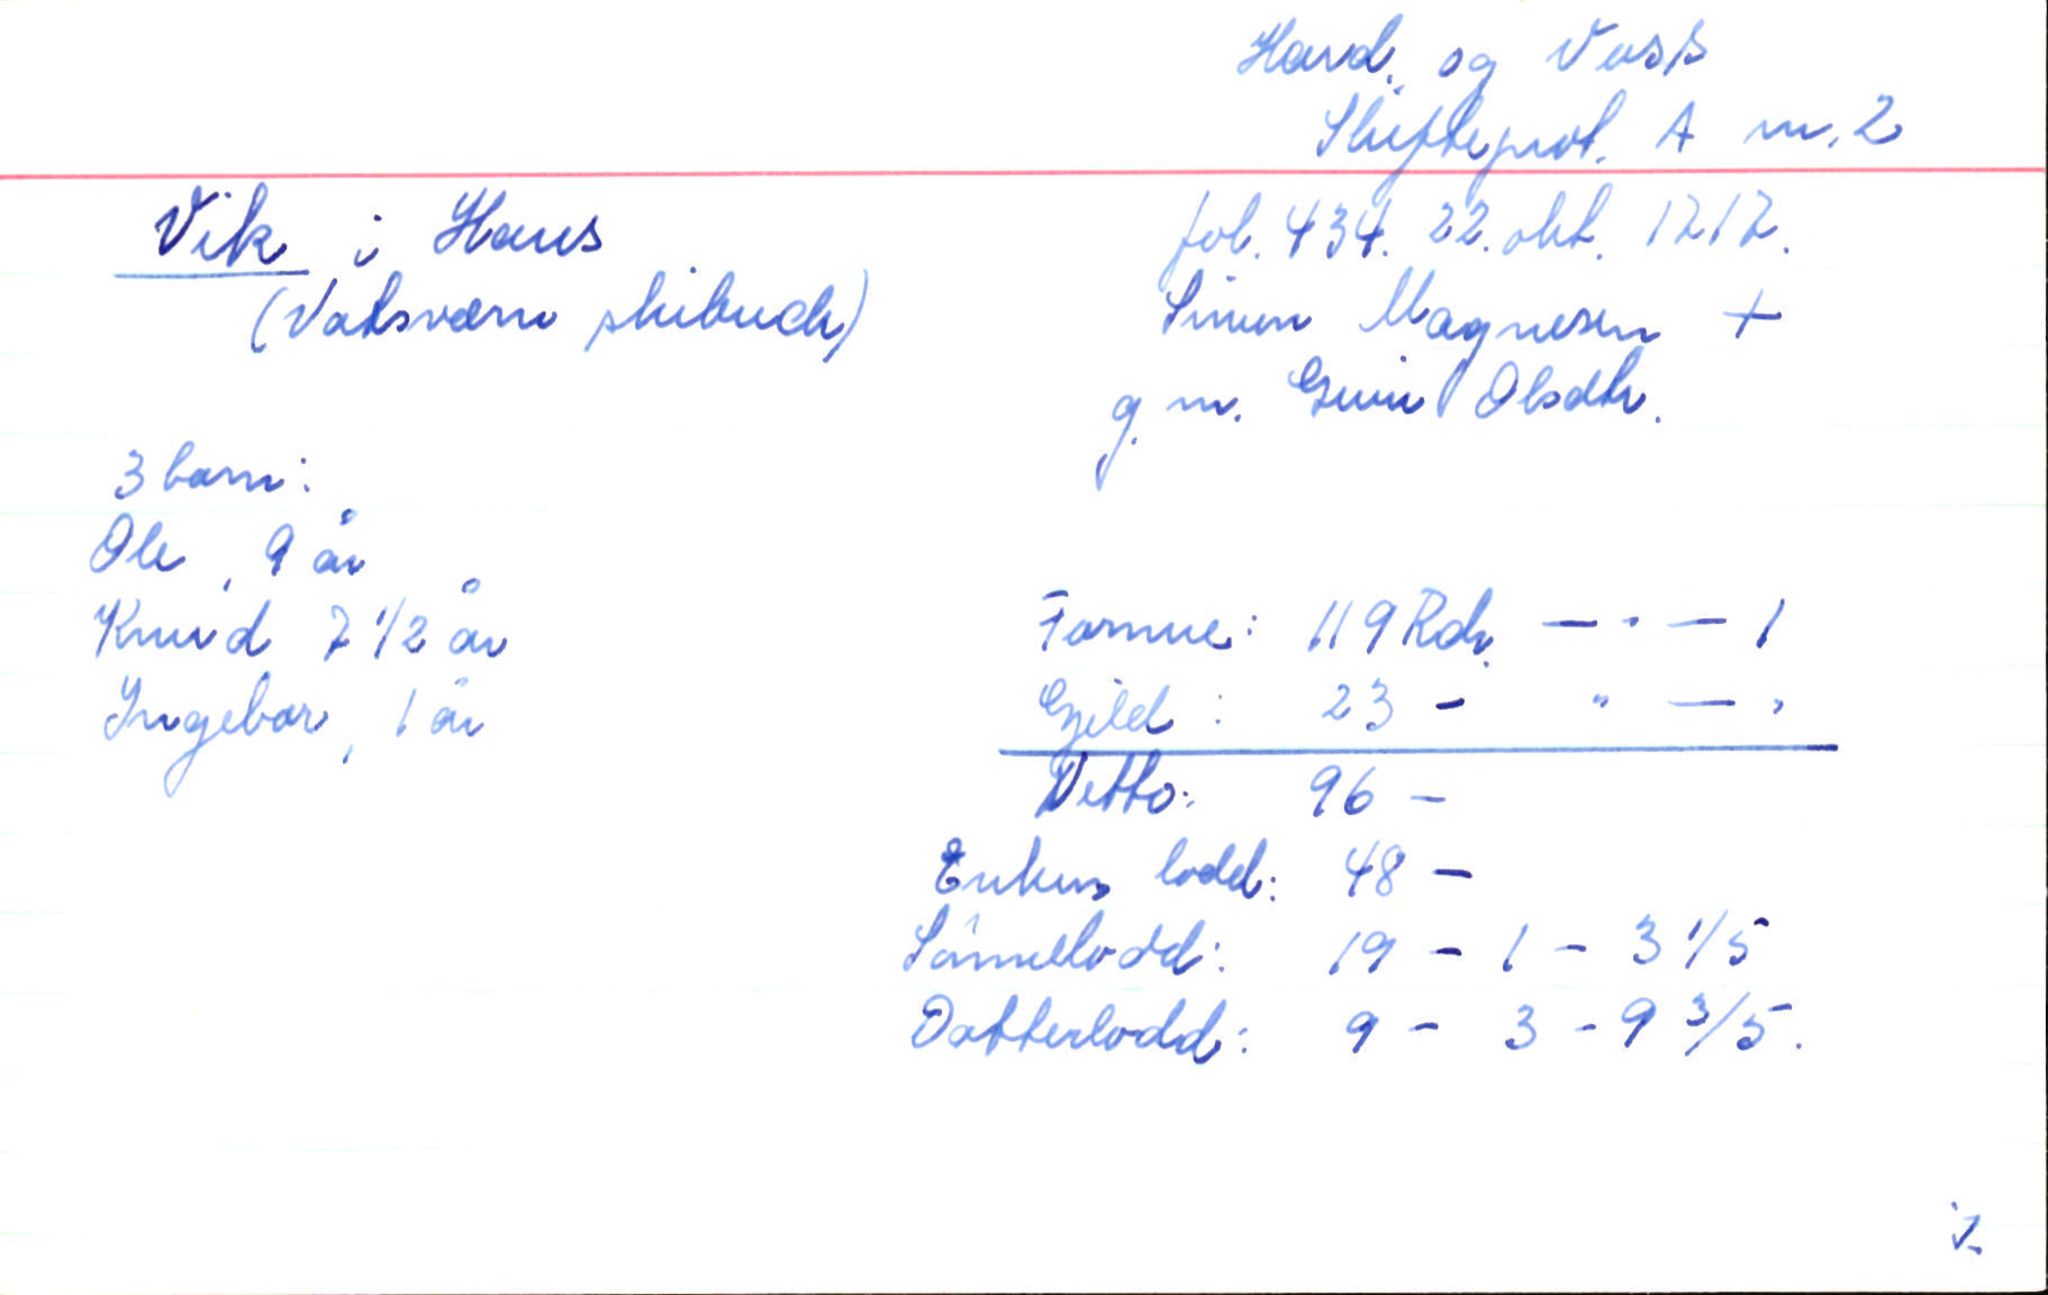 Hard. og Voss
Skifteprot. A nr. 2
Vik i Haus
fol. 434. 22. okt. 1717.
(Vatsværn skibrede)
Simen Magnesen +
g. m. Guri Olsdtr.
3 barn:
Ole, 9 år
Knud 7 1/2 år
Ingebor, 1 år
Formue: 119 Rdr. — · — 1
Gjeld: 23 - " — "
Netto: 96 -
Enkens lodd: 48 -
Sönnelodd: 19 - 1 - 3 1/5
Datterlodd: 9 - 3 - 9 3/5.